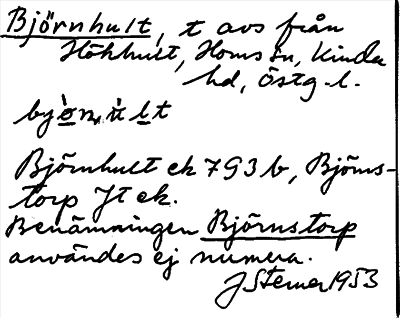 Björnhult, t avs från
Hökhult, Horns sn, Kinda
hd, Östg. l.
Björnhult ek 793b, Björns-
torp Jt ek.
Benämningen Björnstorp
användes ej numera.
J Sterner 1953